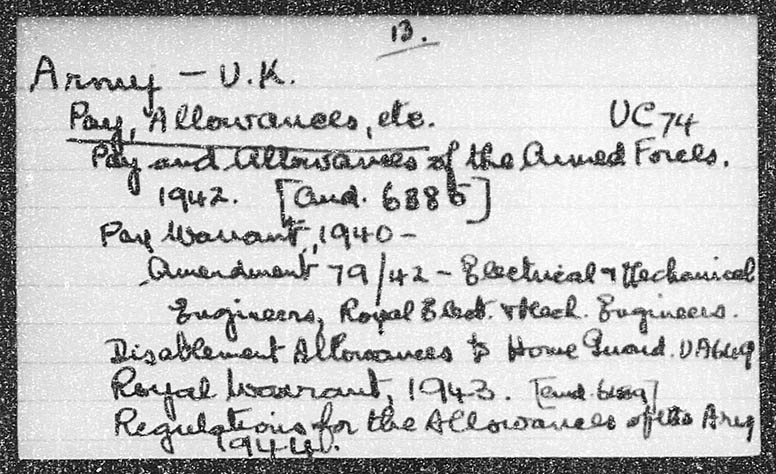 13.
Army - U.K.
Pay, Allowances, etc. UC 74
Pay and Allowances of the Armed Forces.
1942. [Cmd. 6385]
Pay Warrant, 1940 -
Amendment 79/42 - Electrical & Mechanical
Engineers, Royal Elect. & Mech. Engineers.
Disablement Allowances to Home Guard.
Royal Warrant, 1943. [Cmd.
Regulations for the Allowances of the Army
1944.